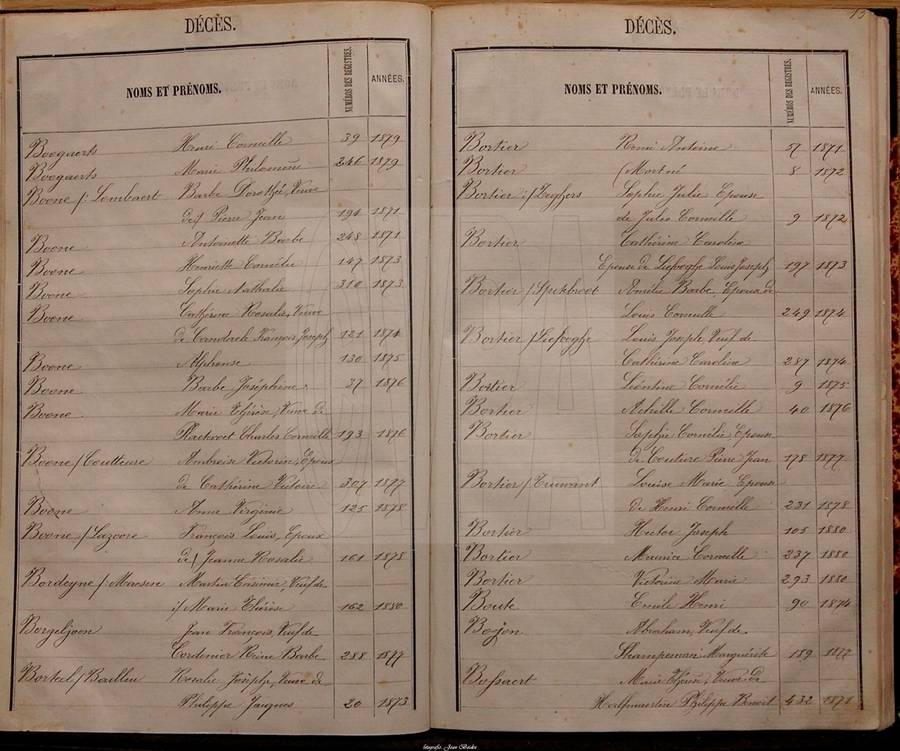 DÉCÈS.
NOMS ET PRÉNOMS. NUMÉROS DES REGISTRES. ANNÉES.
Boogaerts Henri Corneille 39 1879
Boogaerts Marie Philomène 246 1879
Boone /: Lombaert Barbe Dorothée, Veuve
de / Pierre Jean 194 1871
Boone Antoinette Barbe 248 1871
Boone Henriette Cornélie 147 1873
Boone Sophie Nathalie 310 1873
Boone Cathérine Rosalie, Veuve
de François Joseph 121 1874
Boone Alphonse 130 1875
Boone Barbe Joséphine 37 1876
Boone Marie Thérèse, Veuve de
Charles Corneille 193 1876
Boone / Ambroise Victorin, Epoux
de Cathérine Victoire 307 1877
Boone Anne Virginie 125 1878
Boone / Lazoore François Louis, Epoux
de / Jeanne Rosalie 101 1878
Bordeyne / Maesen Martin Casimir, Veuf de
Marie Thérèse 162 1880
Borgeljoen Jean François, Veuf de
Cordenier Reine Barbe 288 1877
Borteel / Baillieu Rosalie Josèphe, Veuve de
Philippe Jacques 20 1873
DÉCÈS. 13
NOMS ET PRÉNOMS. NUMÉROS DES REGISTRES. ANNÉES.
Bortier René Antoine 51 1871
Bortier (Mort né 8 1872
Bortier Sophie Julie Epouse
de Jules Corneille 9 1872
Bortier Cathérine Caroline
Epouse de Liefooghe Louis Joseph 197 1873
Bortier / Amélie Barbe, Epouse de
Louis Corneille 249 1874
Bortier / Liefooghe Louis Joseph, Veuf de
Cathérine Caroline 287 1874
Bortier Léontine Cornélie 9 1875
Bortier Achille Corneille 40 1876
Bortier Sophie Cornélie, Epouse
de Pierre Jean 178 1877
Bortier / Truwant Louise Marie Epouse
de Henri Corneille 231 1878
Bortier Hector Joseph 105 1880
Bortier Maurice Corneille 237 1880
Bortier Victorine Marie 293 1880
Boute Emile Henri 90 1874
Abraham, Veuf de
Marguérite 189 1877
Bossaert Marie Thérèse, Veuve de
Philippe Benoit 432 1871
fotografie: Jean Beeckx